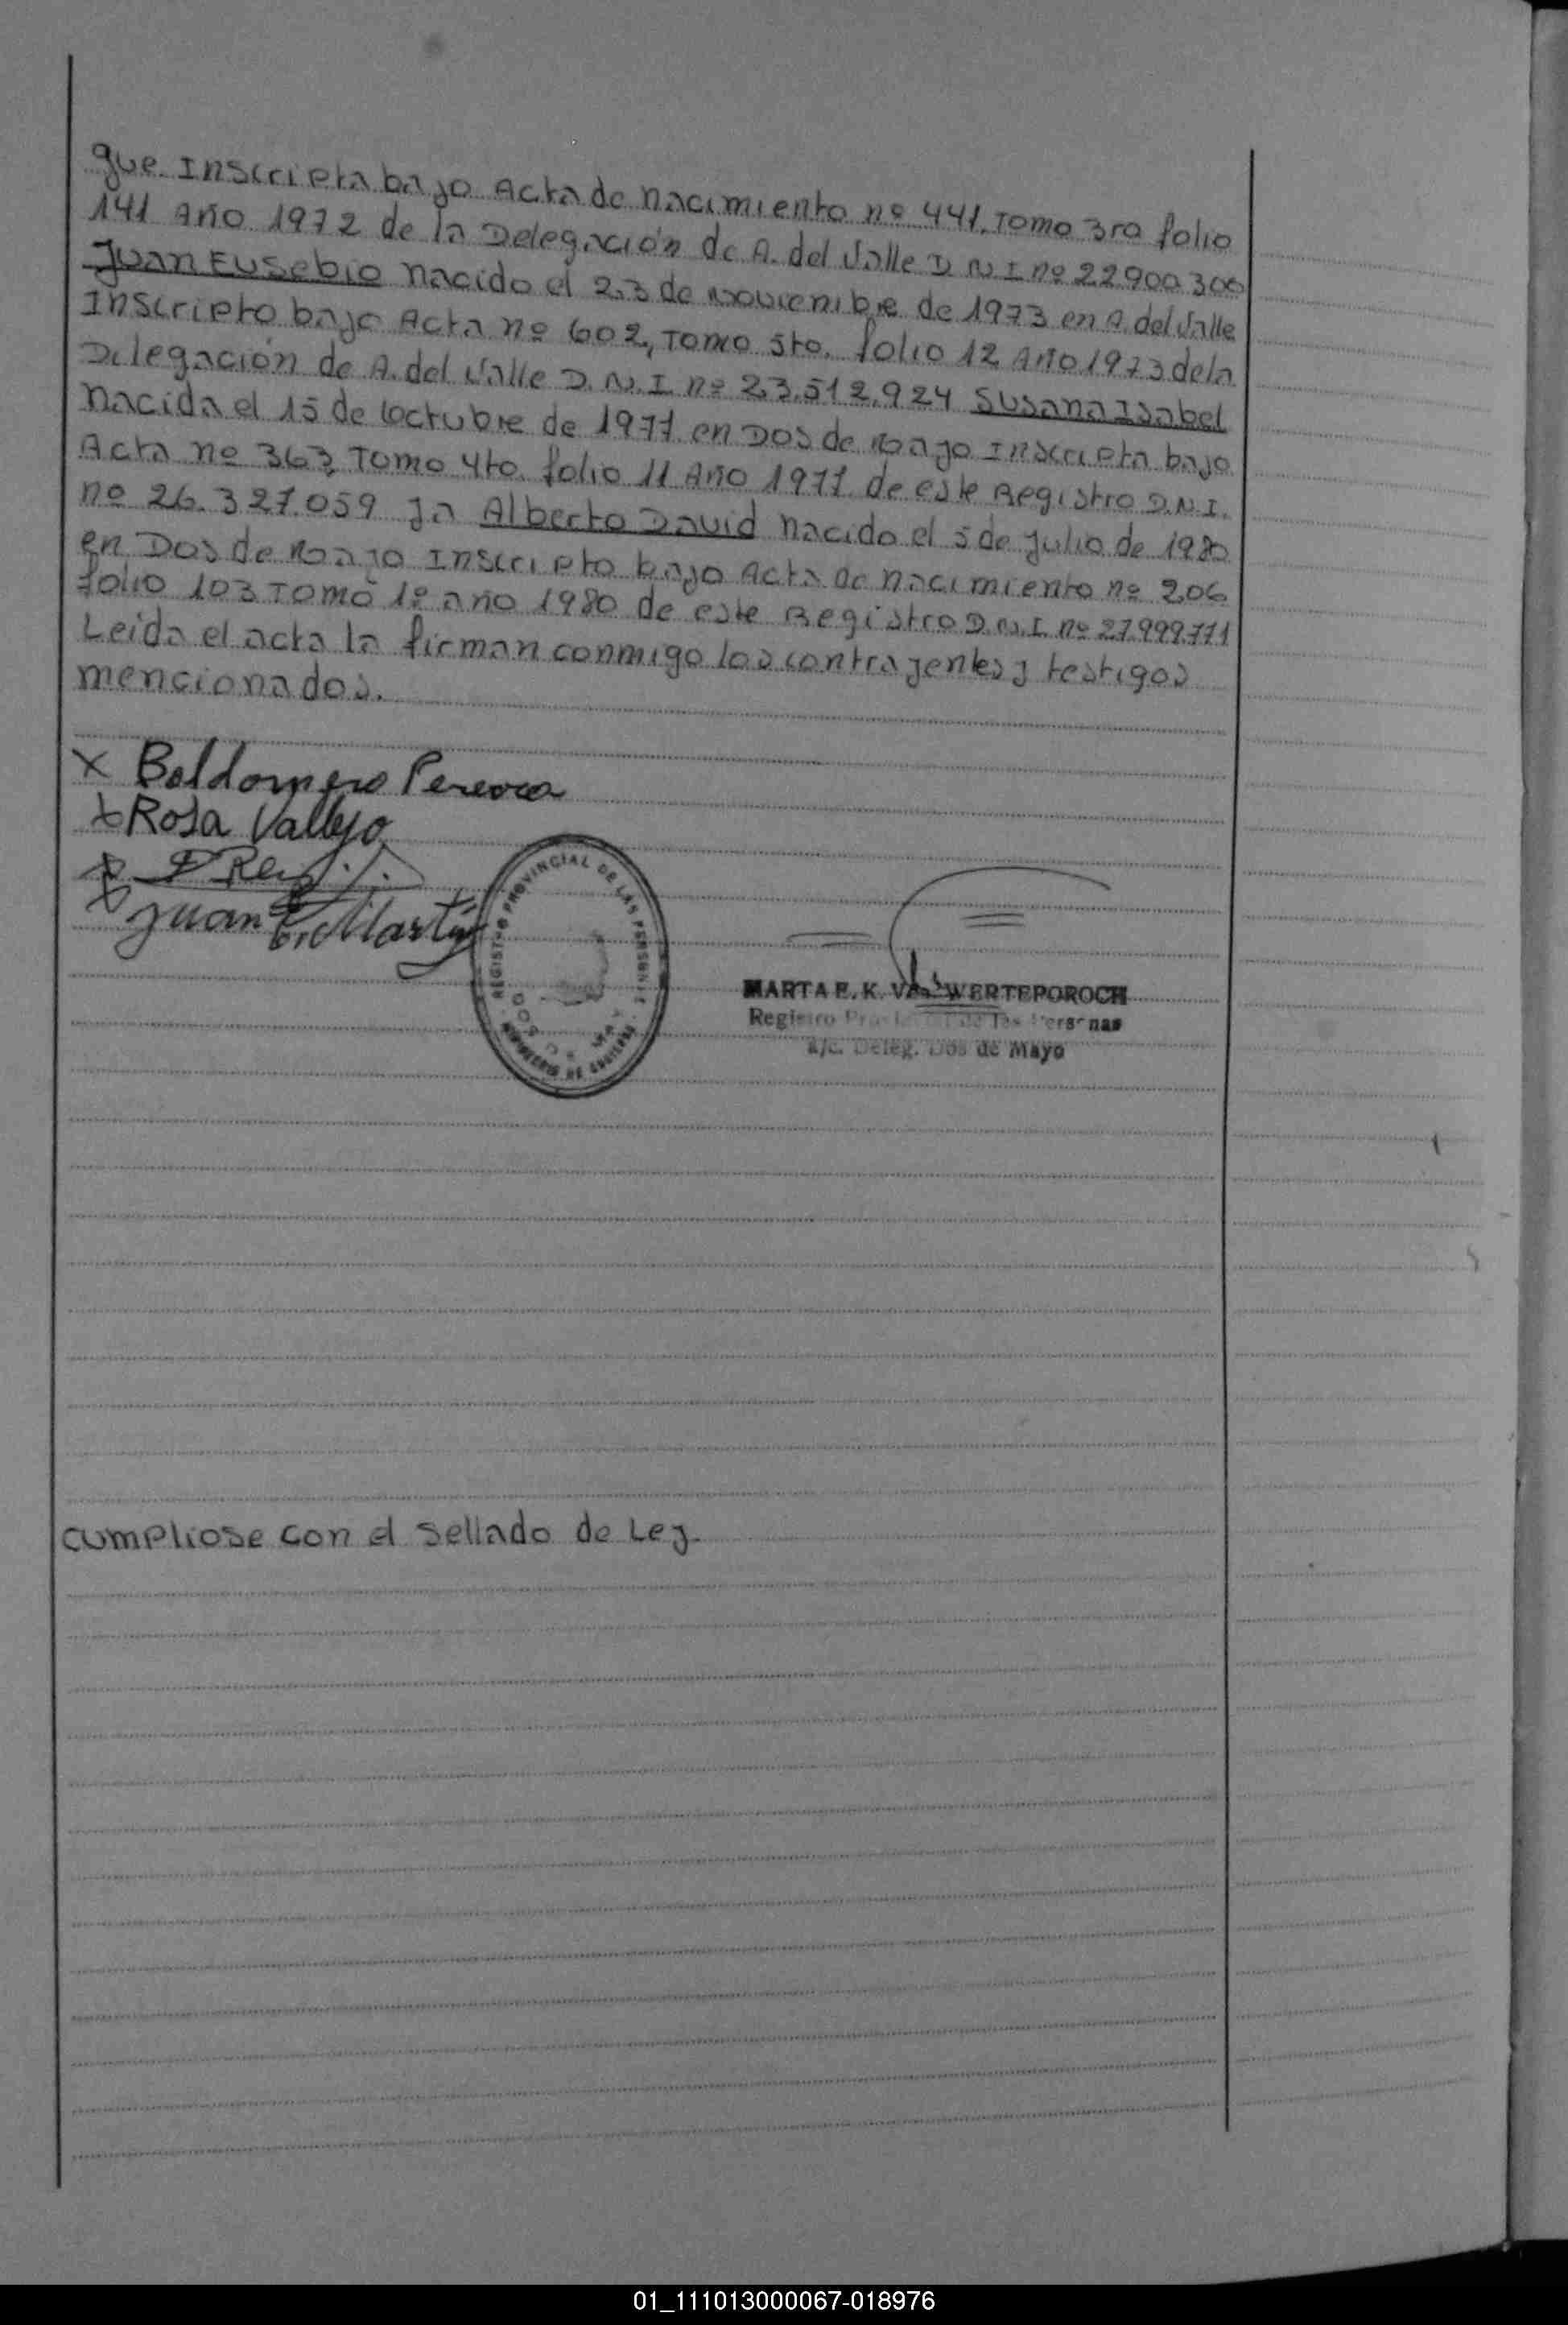 gue. Inscripta bajo Acta de nacimiento nº 441, Tomo 3ro folio
141 Año 1972 de la Delegación de A. del Valle D N I nº 22.900.300
Juan Eusebio nacido el 23 de noviembre de 1973 en A. del Valle
Inscripto bajo Acta nº 602, Tomo 5to. folio 12 Año 1973 de la
Delegación de A. del Valle D. N. I nº 23.512.924 Susana Isabel
nacida el 15 de octubre de 1977 en Dos de mayo Inscripta bajo
Acta nº 363, Tomo 4to. folio 11 Año 1977 de este Registro D.N.I.
nº 26.327.059 ya Alberto David nacido el 5 de julio de 1980
en Dos de mayo Inscripto bajo Acta de nacimiento nº 206
folio 103 Tomo 1º año 1980 de este Registro D.N.I. nº 27.999.771
Leida el acta la firman conmigo los contrayentes y testigos
mencionados.
x Baldomero Pereira
x Rosa Vallejo
Juan E. Martin
REGISTRO PROVINCIAL DE LAS PERSONAS
MINISTERIO DE GOBIERNO
MARTA E. K. WERTEPOROCH
Registro Provincial de las Personas
a/c. Deleg. Dos de Mayo
cumpliose con el sellado de Ley.
01_111013000067-018976